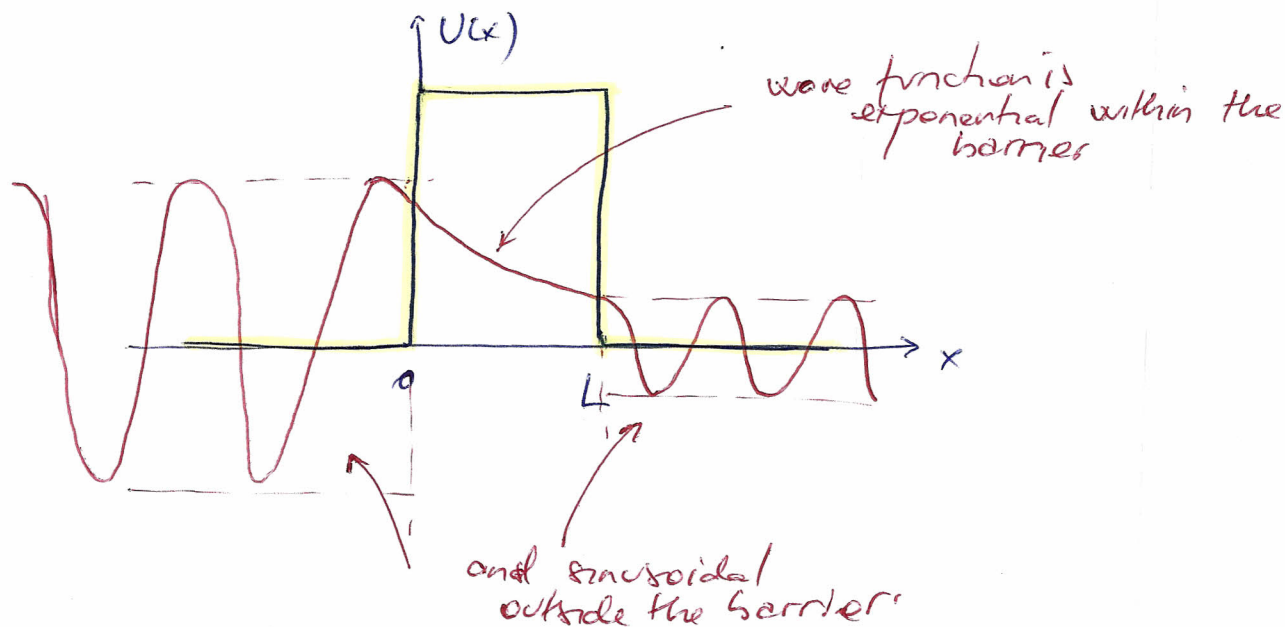 U(x)
wave function is
exponential within the
barrier
x
0
L
and sinusoidal
outside the barrier.